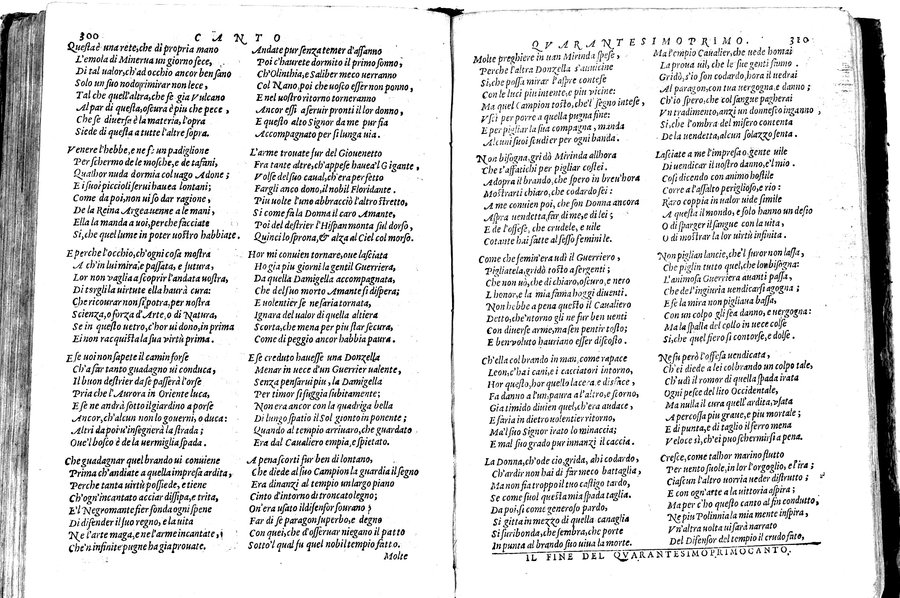 300
CANTO
Questa è una rete, che di propria mano
L'emola di Minerua un giorno fece,
Di tal ualor, ch'ad occhio ancor ben sano
Solo un suo nodo primirar non lece,
Tal che quell'altra, che se già Vulcano
Al par di questa, oscura è piu che pece,
Che se diuerse è la materia, l'opra
Siede di questa a tutte l'altre sopra.
Venere l'hebbe, e ne fe un padiglione
Per schermo de le mosche, e de tafani,
Qualhor nuda dormia col uago Adone;
E i suoi piccioli serui hauea lontani;
Come da poi, non ui so dar ragione,
De la Reina Argea uenne a le mani,
Ella la manda a uoi, perche facciate
Si, che quel lume in poter uostro habbiate.
E perche l'occhio, ch'ogni cosa mostra
A ch'in lui mira, e passata, e futura,
Lor non uaglia a scoprir l'andata uostra,
Di torgli la uirtute ella haurà cura:
Che ricourar non si potra, per nostra
Scienza, o forza d'Arte, o di Natura,
Se in questo uetro, c'hor ui dono, in prima
Ei non racquista la sua virtù prima.
E se uoi non sapete il camin forse
Ch'a far tanto guadagno ui conduca,
Il buon destrier da se passerà l'orse
Pria che l'Aurora in Oriente luca,
E se ne andrà sotto il giardino a porse
Ancor, ch'alcun non lo gouerni, o duca:
Altri da poi u'insegnerà la strada;
Que'l bosco è de la uermiglia spada.
Che guadagnar quel brando ui conuiene
Prima ch'andiate a quella impresa ardita,
Perche tanta uirtù possiede, e tiene
Ch'ogn'incantato acciar dissipa, e trita,
E'l Negromante fier fonda ogni spene
Di difender il suo regno, e la uita
Ne l'arte maga, e ne l'arme incantate,
Che'n infinite pugne ha gia prouate.
Andate pur senza temer d'affanno
Poi c'haurete dormito il primo sonno,
Ch'Olinthia, e Saliber meco uerranno
Col Nano, poi che uosco esser non ponno,
E nel uostro ritorno torneranno
Ancor essi a seruir pronti il lor donno,
E questo alto Signor da me pur fia
Accompagnato per si lunga uia.
L'arme trouate fur del Giouenetto
Fra tante altre, ch'appese hauea'l Gigante,
Volse del suo caual, ch'era perfetto
Fargli anco dono, il nobil Floridante.
Piu uolte l'uno abbracciò l'altro stretto,
Si come fa la Donna il caro Amante,
Poi del destrier l'Hispan monta sul dorso,
Quinci lo sprona, & alza al Ciel col morso.
Hor mi conuien tornare, oue lasciata
Ho gia piu giorni la gentil Guerriera,
Da quella Damigella accompagnata,
Che del suo morto Amante si dispera;
E uolentier se ne saria tornata,
Ignara del ualor di quella altiera
Scorta, che mena per piu star secura,
Come di peggio ancor habbia paura.
E se creduto hauesse una Donzella
Menar in uece d'un Guerrier ualente,
Senza pensarui piu, la Damigella
Per timor si fuggia subitamente;
Non era ancor con la quadriga bella
Di lungo spatio il Sol gionto in ponente;
Quando al tempio arriuaro, che guardato
Era dal Caualiero empia, e spietato.
A pena scorti fur ben di lontano,
Che diede al suo Campion la guardia il segno
Era dinanzi al tempio un largo piano
Cinto d'intorno di troncato legno;
On'era usato il difensor sourano
Far di se paragon superbo, e degno
Con quei, che d'osseruar niegano il patto
Sotto'l qual fu quel nobil tempio fatto.
Molte
QVARANTESIMOPRIMO. 310
Molte preghiere in uan Mirinda spese,
Perche l'altra Donzella s'auuicine
Si, che possa mirar l'aspre contese
Con le luci piu intento, e piu vicine:
Ma quel Campion tosto, che'l segno intese,
Vsci per porre a quella pugna fine:
E per pigliar la sua compagna, manda
Alcuni studier per ogni banda.
Non bisogna, gridò Mirinda allhora
Che t'affatichi per pigliar costei.
Adopra il brando, che spero in breu'hora
Mostrarti chiaro, che codardo sei:
A me conuien poi, che son Donna ancora
Aspra uendetta, far di me, e di lei;
E de l'offese, che crudele, e uile
Cotante hai fatte al sesso feminile.
Come che femin'era udì il Guerriero,
Pigliatela, gridò tosto a sergenti;
Che non uò, che di chiaro, oscuro, e nero
L'honor, e la mia fama hoggi diuenti.
Non hebbe a pena questo il Caualiero
Detto, che'ntorno gli ne fur ben uenti
Con diuerse arme, ma sen pentir tosto;
E benuoluto hauriano esser discosto.
Ch'ella col brando in man, come rapace
Leon, c'hai cani, e i cacciatori intorno,
Hor questo, hor quello lacera, e disface,
Fa danno a l'un, paura a l'altro, e scorno,
Gia timido diuien quel, ch'era audace,
E faria in dietro uolentier ritorno,
Ma'l suo Signor irato lo minaccia;
E mal suo grado pur innanzi il caccia.
La Donna, ch'ode cio, grida, ahi codardo,
Ch'ardir non hai di far meco battaglia,
Ma non fia troppo il tuo castigo tardo,
Se come suol questa mia spada taglia.
Da poi, si come generoso pardo,
Si gitta in mezzo di quella canaglia
Si furibonda, che sembra, che porte
In punta al brando suo uiua la morte.
Ma l'empio Caualier, che uede homai
La proua uil, che fa le sue genti sanno,
Gridò, s'io son codardo, hora il uedrai
Al paragon, con tua uergogna, e danno;
Ch'io spero, che col sangue pagherai
Vn tradimento, anzi un donnesco inganno,
Si, che l'ombra del misero contenta
De la uendetta, alcun solazzo senta.
Lasciate a me l'impresa o gente uile
Di uendicar il uostro danno, e'l mio.
Cosi dicendo con animo hostile
Corre a l'assalto periglioso, e rio:
Raro coppia in ualor uide simile
A questa il mondo, e solo hanno un desio
O di sparger il sangue con la uita,
O di mostrar la lor virtù infinita.
Non piglian lancie, che'l furor non lassa,
Che piglin tutto quel, che lor bisogna:
L'animosa Guerriera auanti passa,
Che de l'ingiuria uendicarsi agogna;
E se la mira non pigliaua bassa,
Con un colpo gli fea danno, e uergogna:
Ma la spalla del collo in uece colse
Si, che quel fiero si contorse, e dolse.
Ne fu però l'offesa uendicata,
Ch'ei diede a lei col brando un colpo tale,
Ch'udì il romor di quella spada irata
Ogni pesce del lito Occidentale,
Ma nulla il cura quell'ardita, usata
A percossa piu graue, e piu mortale;
E di punta, e di taglio il ferro mena
Veloce sì, ch'ei puo schermirsi a pena.
Cresce, come talhor marino flutto
Per uento suole, in lor l'orgoglio, e l'ira;
Ciascun l'altro uorria ueder distrutto;
E con ogn'arte a la uittoria aspira;
Ma per c'ho questo canto al fin condutto,
Ne piu Polinnia la mia mente inspira,
Vn'altra uolta ui sarà narrato
Del Difensor del tempio il crudo fato,
IL FINE DEL QVARANTESIMOPRIMO CANTO.